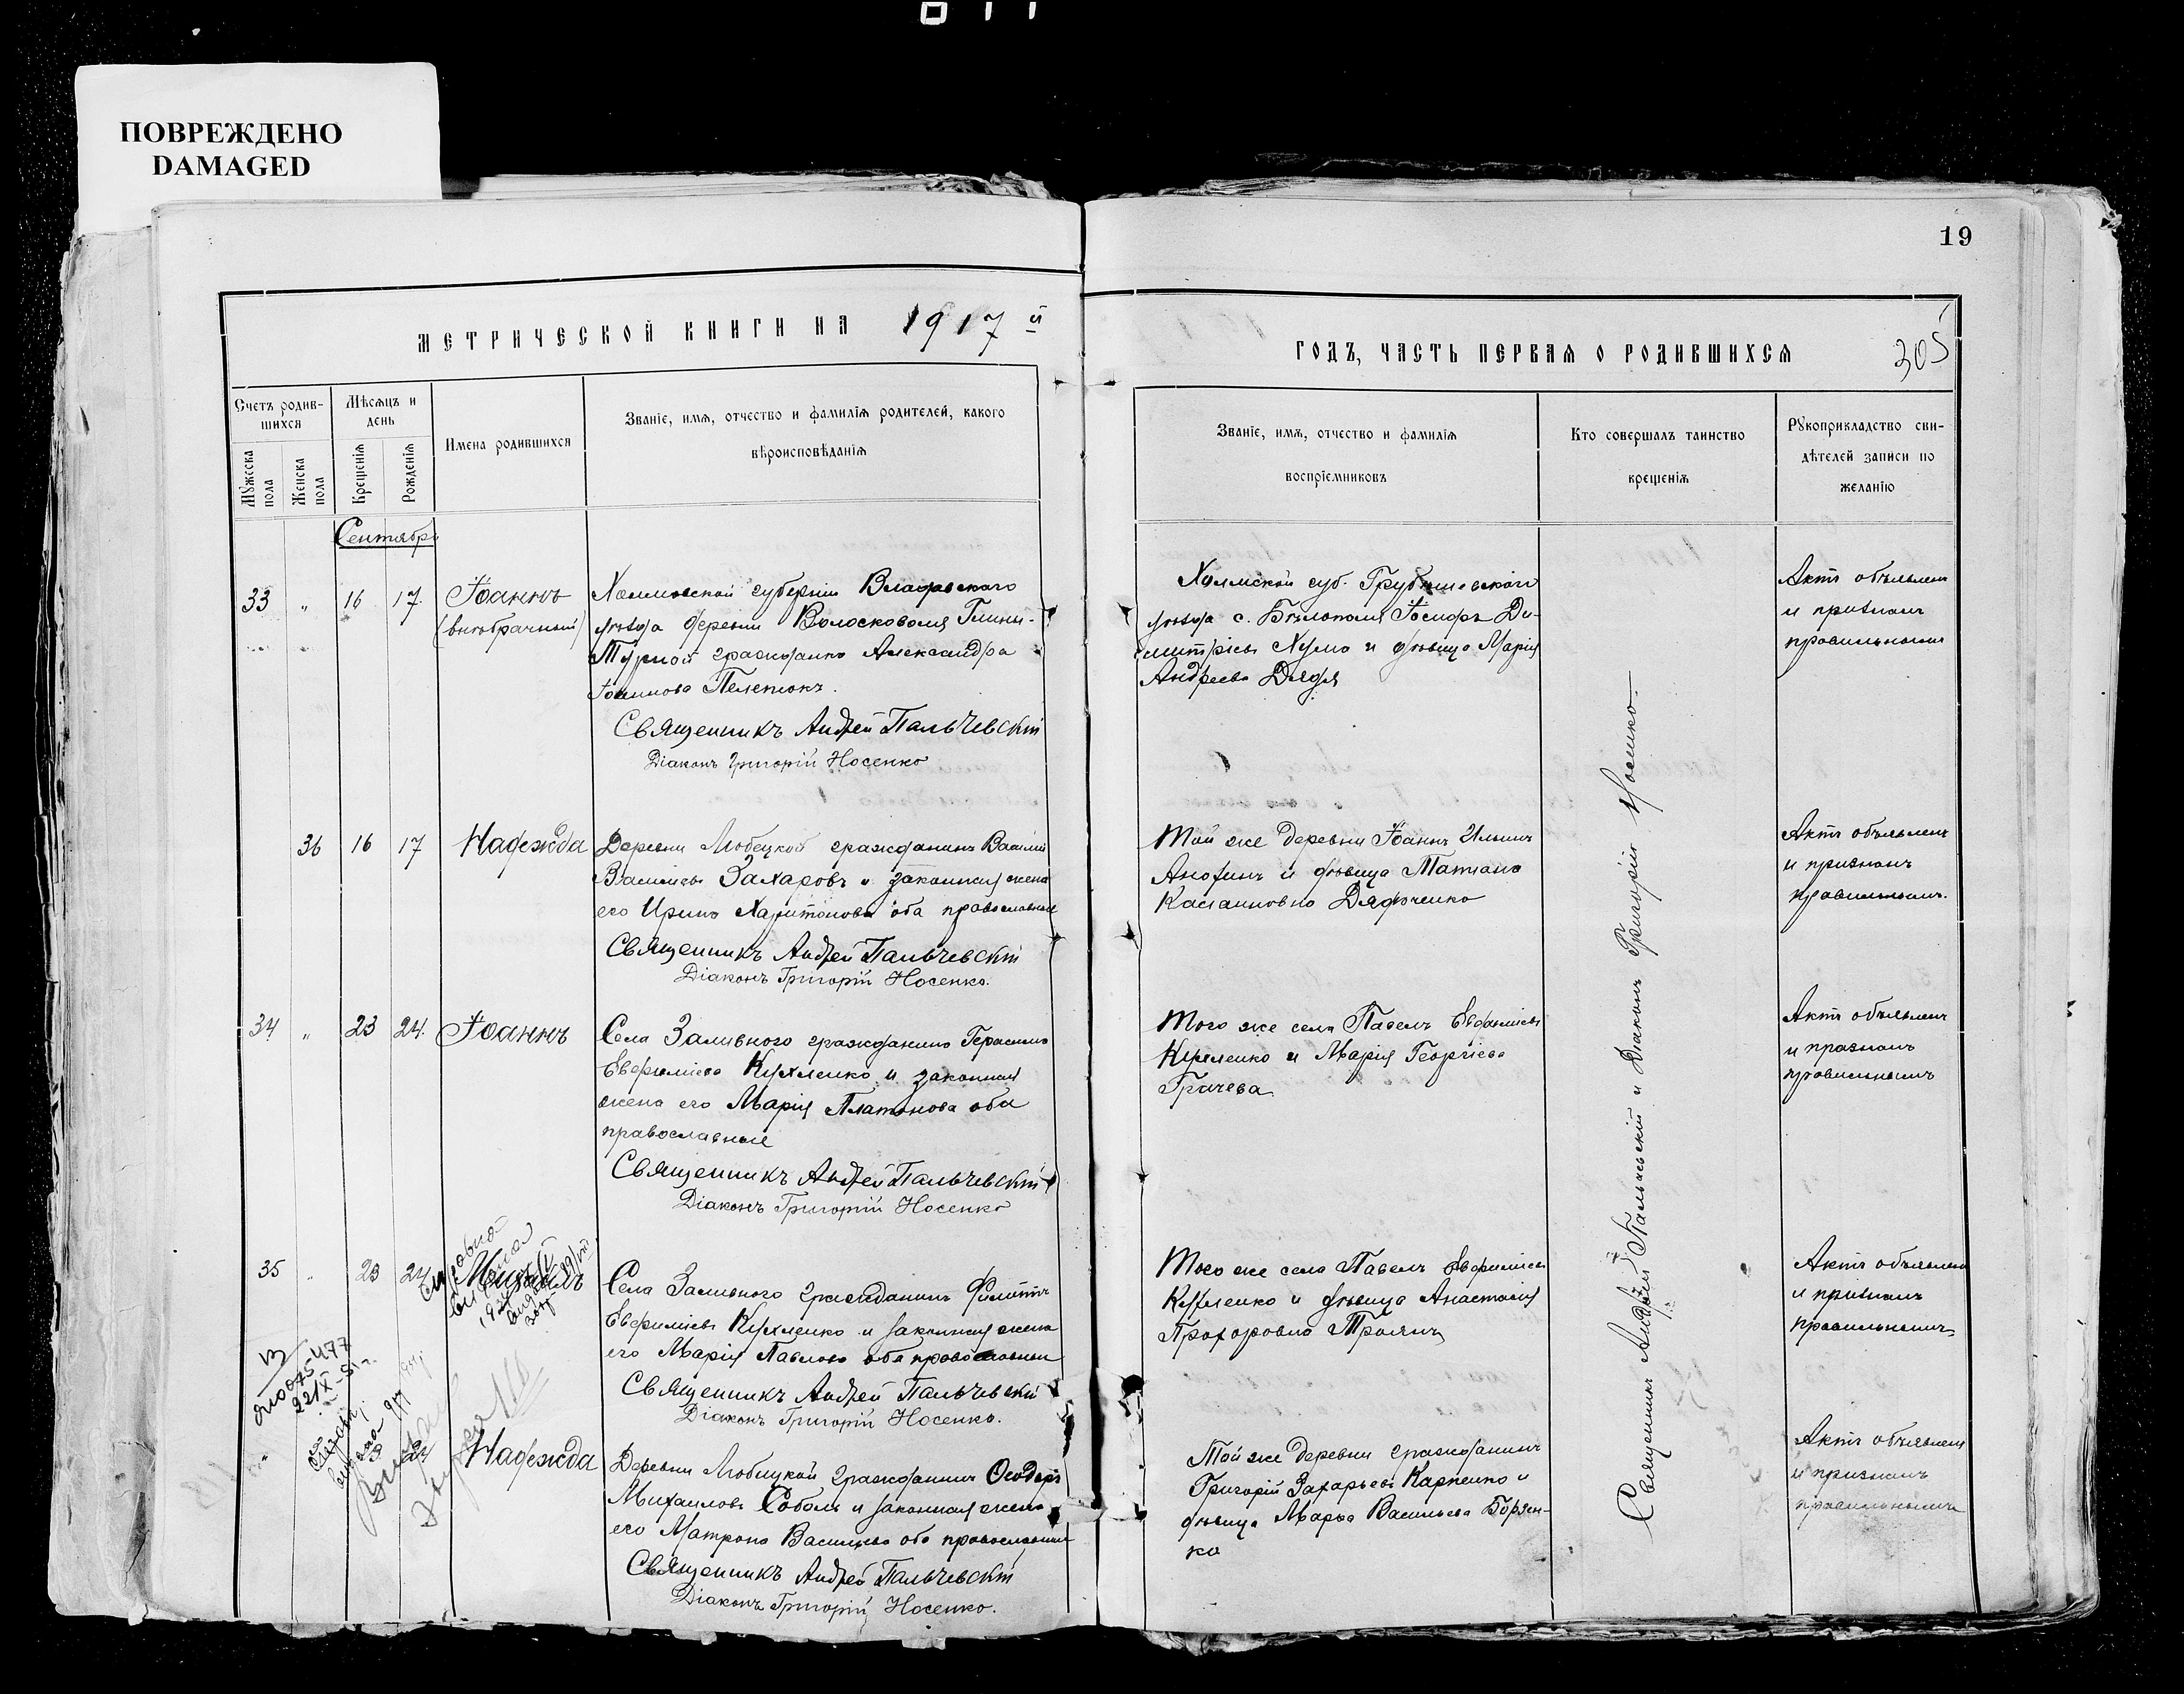 ПОВРЕЖДЕНО
DAMAGED
19
МЕТРИЧЕСКОЙ КНИГИ НА 1917 й
ГОДЪ, ЧАСТЬ ПЕРВАЯ О РОДИВШИХСЯ
305
Счетъ родив-
шихся
Мужеска пола
Женска пола
Мѣсяцъ и
день
Крещенія
Рожденія
Имена родившихся
Званіе, имя, отчество и фамилія родителей, какого
вѣроисповѣданія
Званіе, имя, отчество и фамилія
воспріемниковъ
Кто совершалъ таинство
крещенія
Рукоприкладство сви-
дѣтелей записи по
желанію
Сентябрь
33 " 16 17. Іоаннъ
(внебрачный)
Холмовской губерніи
уѣзда деревни
гражданка Александра
Священникъ Андрей Пальчевскій
Діаконъ Григорій Носенко
Холмской губ.
уѣзда с. Іосифъ Ди-
митріевъ и дѣвица Марія
Андреева Дядя
Актъ объявленъ
и признанъ
правильнымъ
36 16 17 Надежда
Деревни Любецкой гражданинъ Василій
Васильевъ Захаровъ и законная жена
его Ирина Харитонова оба православные
Священникъ Андрей Пальчевскій
Діаконъ Григорій Носенко.
Той же деревни Іоаннъ Ильинъ
Анохинъ и дѣвица Татіана
Дядюченко
Актъ объявленъ
и признанъ
правильнымъ.
34 " 23 24. Іоаннъ
Села Заливного гражданинъ Герасимъ
Евфиміевъ Кухленко и законная
жена его Марія Платонова оба
православные
Священникъ Андрей Пальчевскій
Діаконъ Григорій Носенко
Того же села Павелъ Евфиміевъ
Кухленко и Марія Георгіева
Грачева
Актъ объявленъ
и признанъ
правильнымъ
35 " 23 24 Михаилъ
Села Заливного гражданинъ Филиппъ
Евфиміевъ Кухленко и законная жена
его Марія Павлова оба православные
Священникъ Андрей Пальчевскій
Діаконъ Григорій Носенко.
Того же села Павелъ Евфиміевъ
Кухленко и дѣвица Анастасія
Прохоровна Троянъ
Актъ объявленъ
и признанъ
правильнымъ
" Надежда
Деревни Любецкой гражданинъ Ѳеодоръ
Михаиловъ Соболь и законная жена
его Матрона Васильева оба православные
Священникъ Андрей Пальчевскій
Діаконъ Григорій Носенко.
Той же деревни гражданинъ
Григорій Захарьевъ Карпенко и
дѣвица Марѳа Васильева Борзен-
ко
Актъ объявленъ
и признанъ
правильнымъ
Священникъ Андрей Пальчевскій и Діаконъ Григорій Носенко